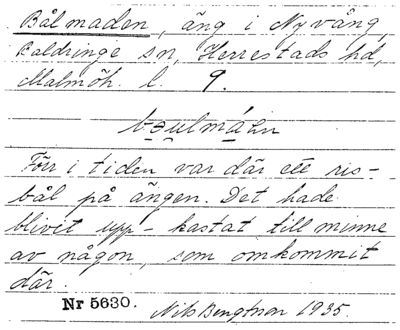 Bålmaden, äng i Nyvång,
Baldringe sn, Herrestads hd,
Malmöh. l. 9.
Förr i tiden var där ett ris-
bål på ängen. Det hade
blivit upp-kastat till minne
av någon, som omkommit
där.
Nr 5630.
Nils Bengtsson 1935.